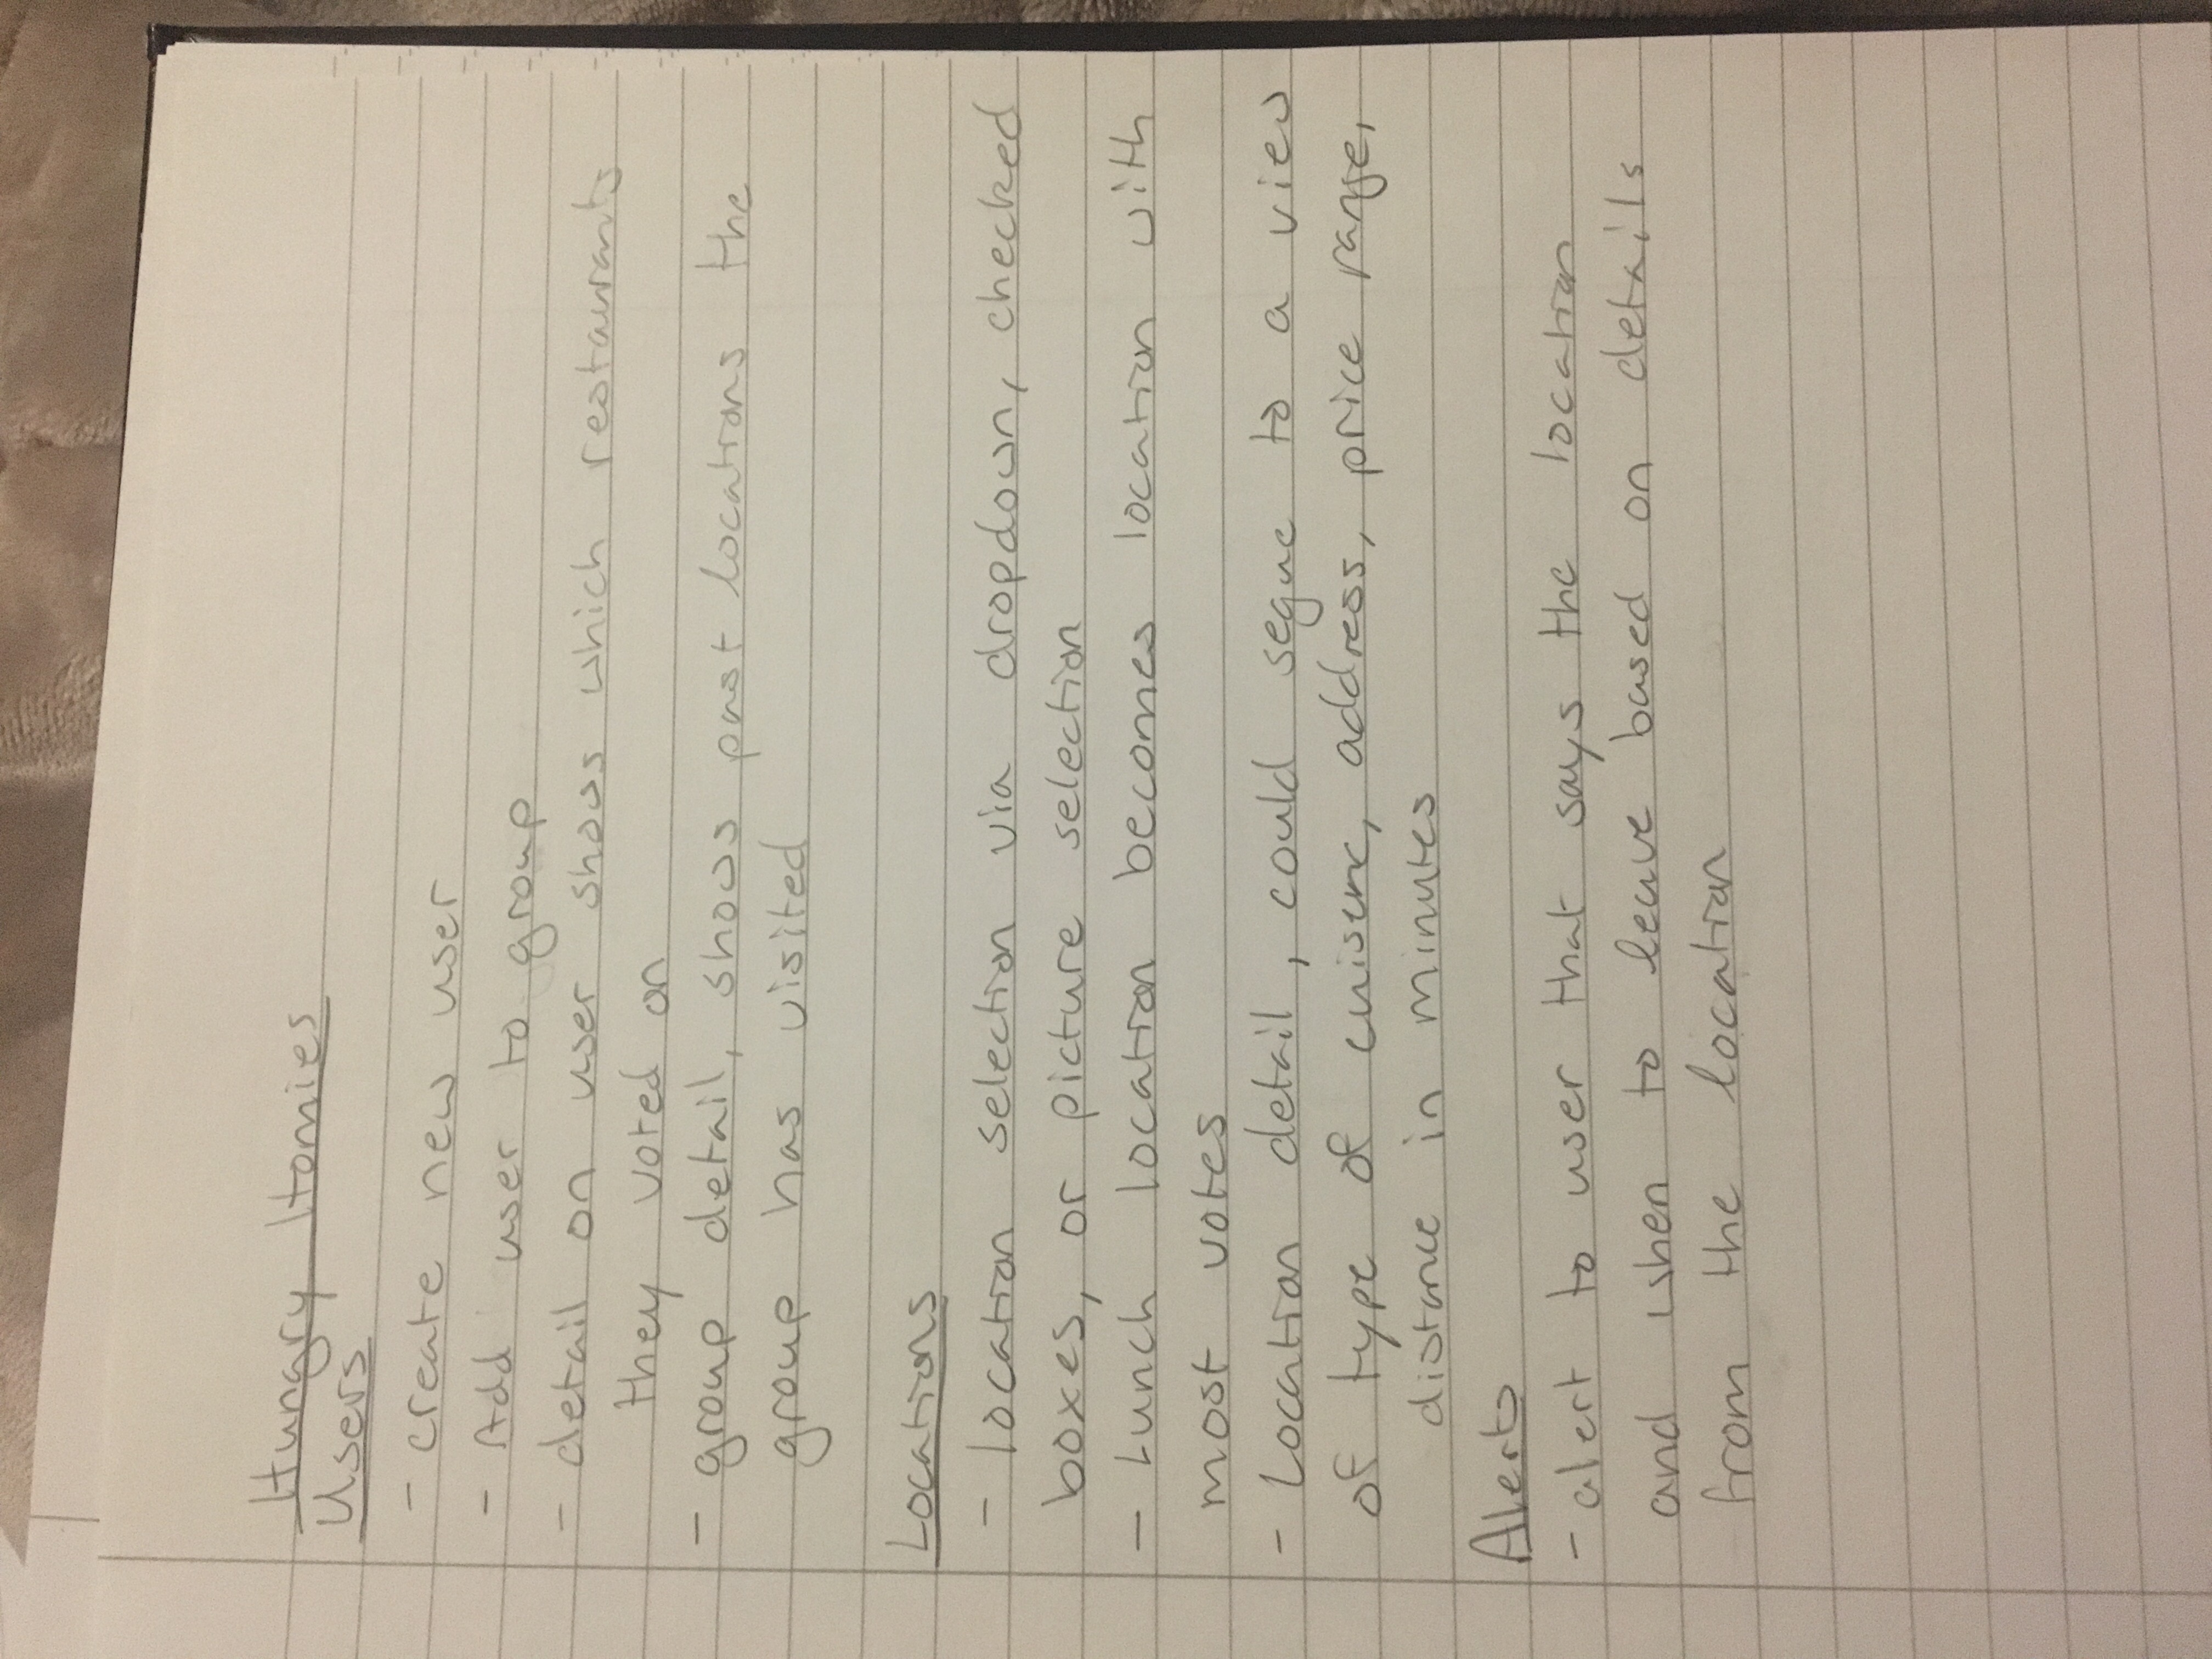 Hungry Homies
Users
- create new user
- Add user to group
- detail on user shows which restaurants
they voted on
- group detail, shows past locations the
group has visited
Locations
- location selection via dropdown, checked
boxes, or picture selection
- Lunch location becomes location with
most votes
- Location detail, could segue to a view
of type of cuisene, address, price range,
distance in minutes
Alerts
- alert to user that says the location
and when to leave based on details
from the location